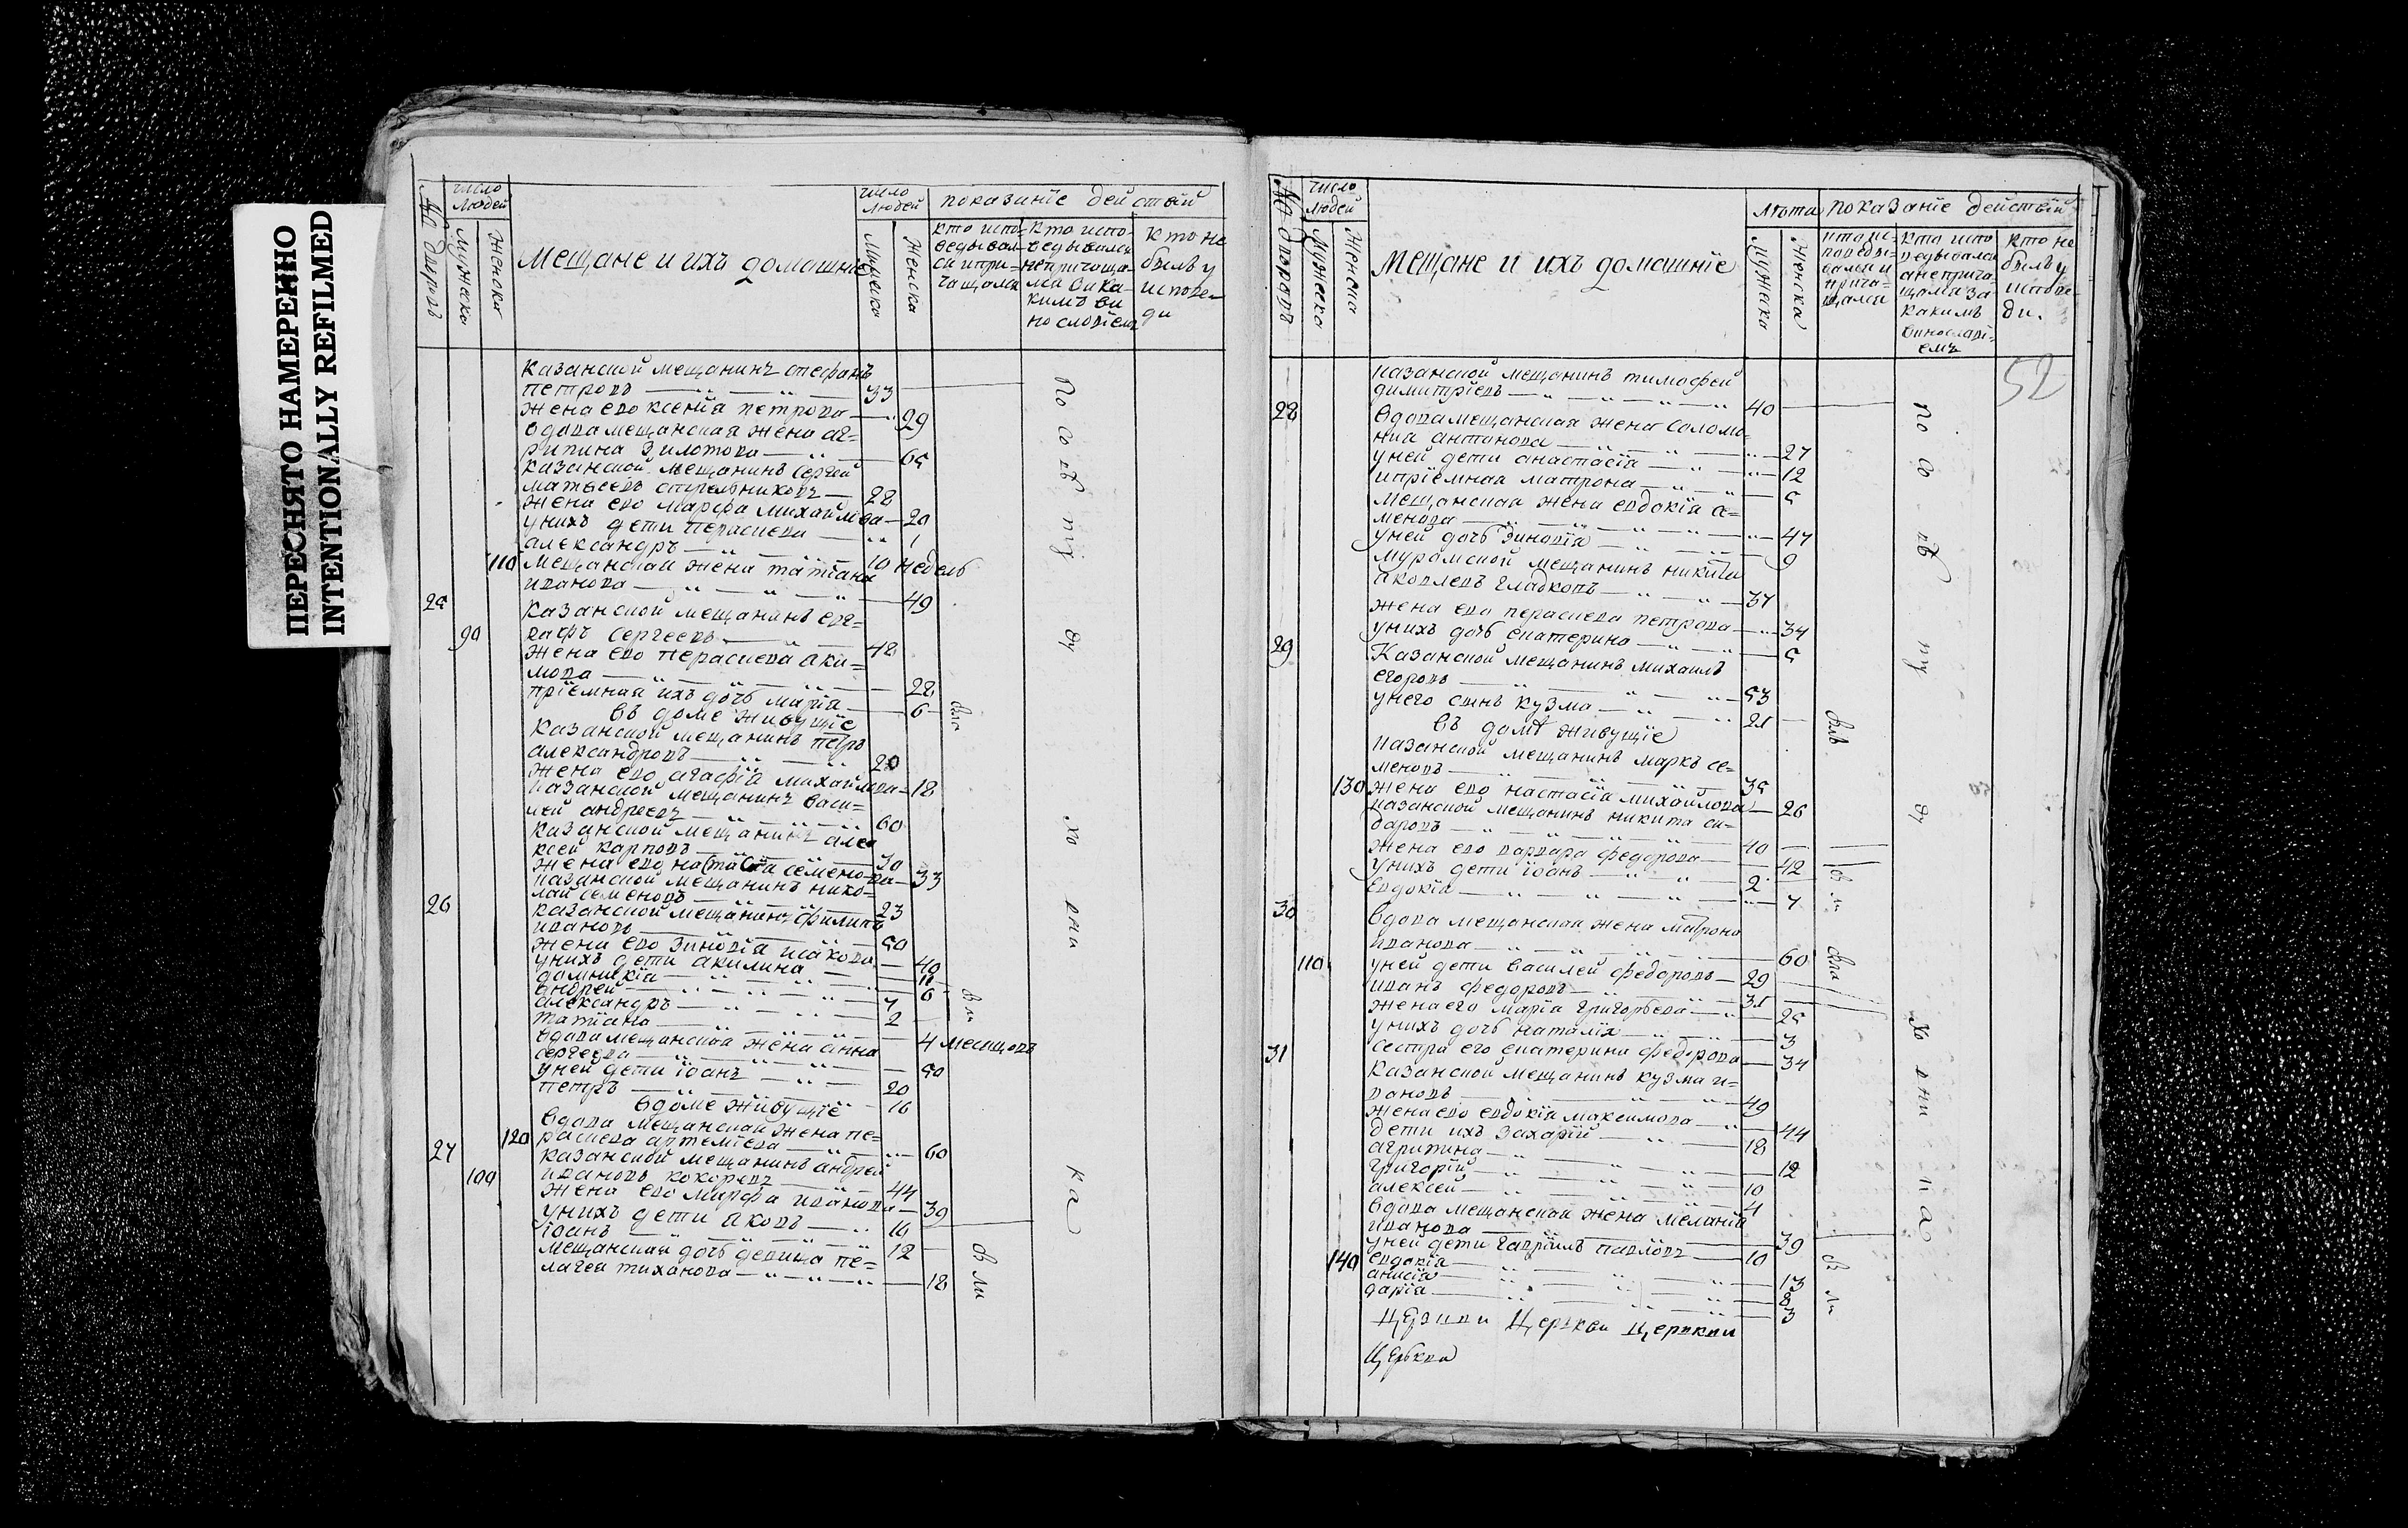 ПЕРЕСНЯТО НАМЕРЕННО
INTENTIONALLY REFILMED
№ дворовъ
число людей
Мужеска
Женска
Мещане и ихъ домашніе
число людей
Мужеска
Женска
показаніе действій
кто испо-
ведывал-
ся и при-
чащался
кто испо-
ведывался
не причаща-
кто не
былъ у
испове-
ди
Казанской мещанинъ стефанъ
петровъ 33
жена ево ксенїа петрова 29
вдова мещанская жена аг=
рипина Зилотова 65
Казанской мещанинъ Сергей
матвеевъ стрельниковъ 28
жена ево марфа михайлова 20
у нихъ дети параскева 1
александръ 10 недель
110 Мещанская жена татїана
иванова 49
25 Казанской мещанинъ евг=
90 рафъ Сергеевъ 48
жена ево параскева аки=
мова 28
прїемная ихъ дочь марїа 6
въ доме живущїе
Казанской мещанинъ петръ
александровъ 20
жена ево агафїа михайлова 18
Казанской мещанинъ васи=
лей андреевъ 60
Казанской мещанинъ алек
сей карповъ 30
жена ево настасїа семенова 33
Казанской мещанинъ нико=
лай семеновъ 23
26 Казанской мещанинъ филипъ
ивановъ 50
жена ево Зиновїа исакова 40
у нихъ дети акилина 11
домникїа 6
андрей 7
александръ 2
татїана 4 месецовъ
вдова мещанская жена анна
сергеева 50
у ней дети іоанъ 20
петръ 16
в доме живущїе
вдова мещанская жена па=
120 раскева артемїева 60
27 Казанской мещанинъ андрей
100 ивановъ кокоревъ 44
жена ево марфа иванова 39
у нихъ дети яковъ 16
іоанъ 12
мещанская дочь девица пе=
лагея тиханова 18
По сов ту ду хо вни ка
№ дворовъ
число людей
Мужеска
Женска
Мещане и ихъ домашнїе
лета
Мужеска
Женска
показанїе действїй
кто ис-
поведы-
вался и
прича-
щался
кто испо
ведывался
а не прича-
щался за
какимъ
винословї-
емъ
кто не
былъ у
испове-
ди.
52
Казанской мещанинъ тимофей
димитрїевъ 40
28 вдова мещанская жена соломо=
нїа антонова 27
у ней дети анастасїа 12
и прїемная матрона 5
мещанская жена евдокїа с=
менова 47
у ней дочь Зиновїа 9
муромской мещанинъ никита
яковлевъ гладковъ 37
жена ево параскева петрова 34
у нихъ дочь екатерина 5
29 Казанской мещанинъ михаилъ
егоровъ 53
у него сынъ кузма 21
въ доме живущїе
Казанской мещанинъ маркъ се=
меновъ 35
130 жена ево настасїа михайлова 26
казанской мещанинъ никита си=
даровъ 40
жена ево варвара федорова 42
у нихъ дети іоанъ 2
евдокїа 7
30 вдова мещанская жена матрона
иванова 60
110 у ней дети василей федоровъ 29
иванъ федоровъ 31
жена его марїа григорьева 25
у нихъ дочь наталїа 3
сестра его екатерина федорова 34
31 Казанской мещанинъ кузма и=
вановъ 49
жена ево евдокїа максимова 44
дети ихъ Захарїй 18
агрипина 12
григорїй 10
алексей 4
вдова мещанская жена меланїа
иванова 39
у ней дети гаврїилъ павловъ 10
140 евдокїа 13
анисїа 8
дарїа 3
Церкви Церкви Церкви
Церкви
по со в ту ду хо вни ка